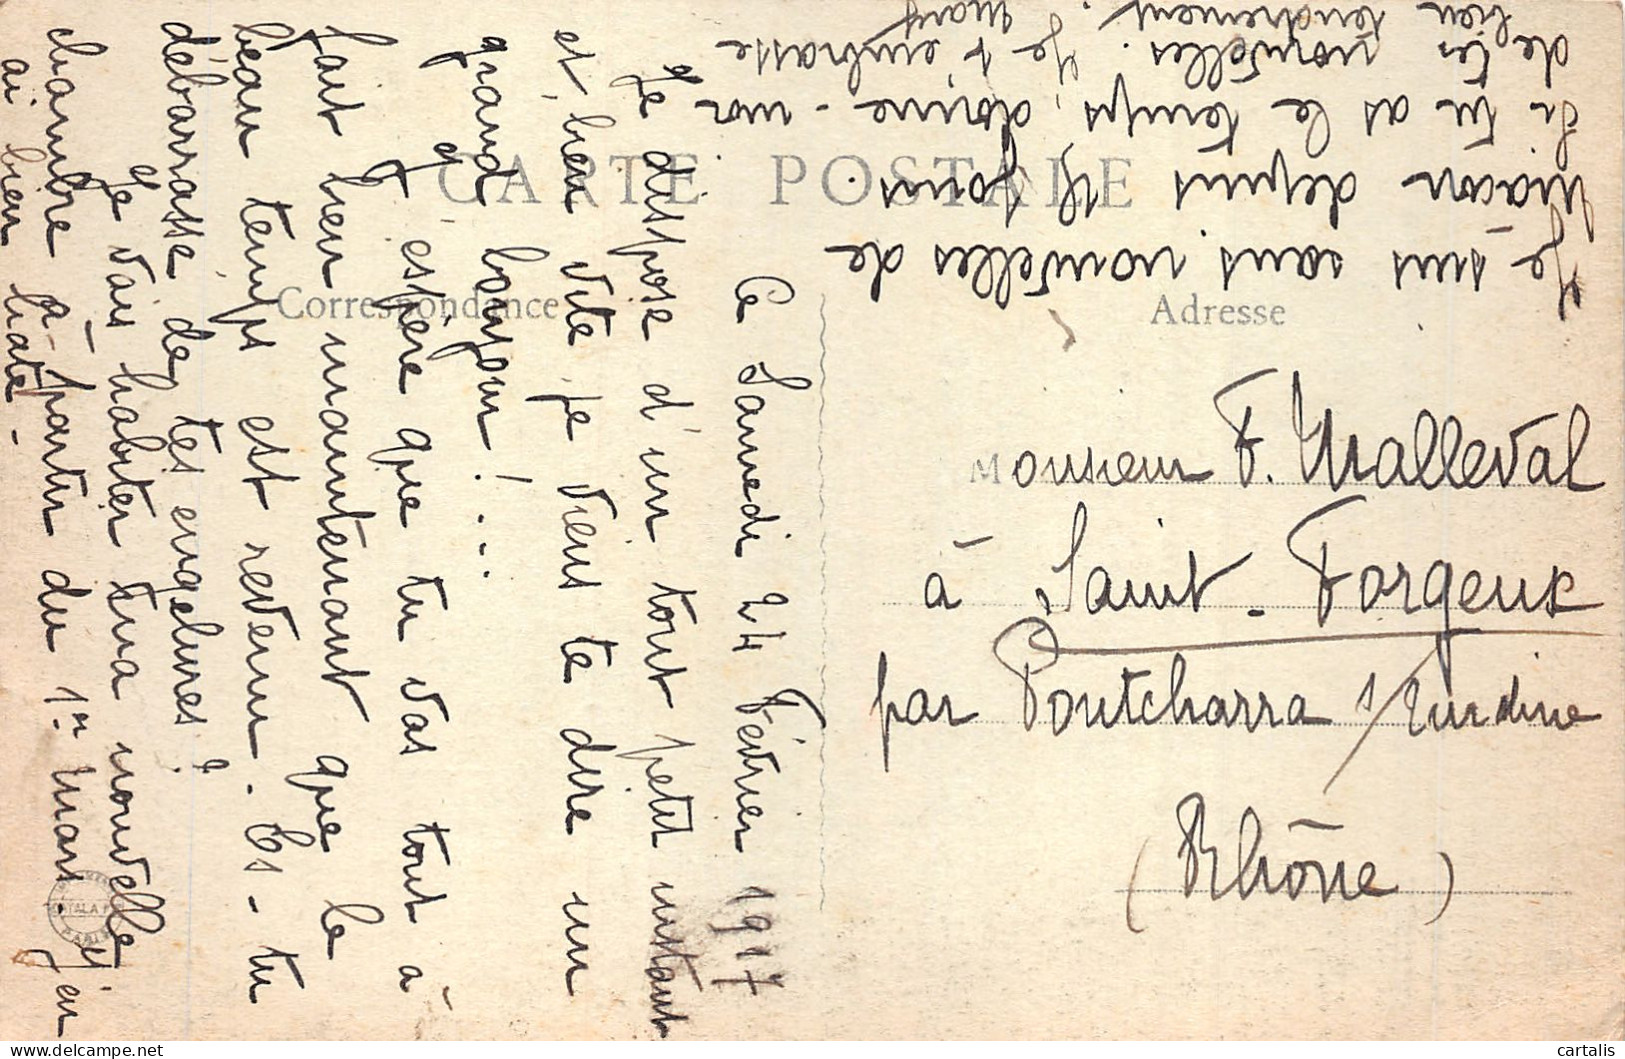 CARTE POSTALE
Correspondance
Adresse
Ce Samedi 24 Février 1917
Je dispose d'un tout petit instant
et, bien vite, je vient te dire un
grand bonjour!...
J'espère que tu vas tout à
fait bien maintenant que le
beau temps est revenu. Es-tu
débarrasse de tes engelures?
Je vais habiter ma nouvelle
chambre à partir du 1er Mars et j'en
ai bien hâte.
Je suis sans nouvelles de
Mâcon depuis 15 jours
Si tu as le temps, donne-moi
de tes nouvelles. Je t'embrasse
bien tendrement.
Monsieur F. Malleval
à Saint-Forgeux
par Pontcharra s/Turdine
(Rhône)
PARIS
cartalis